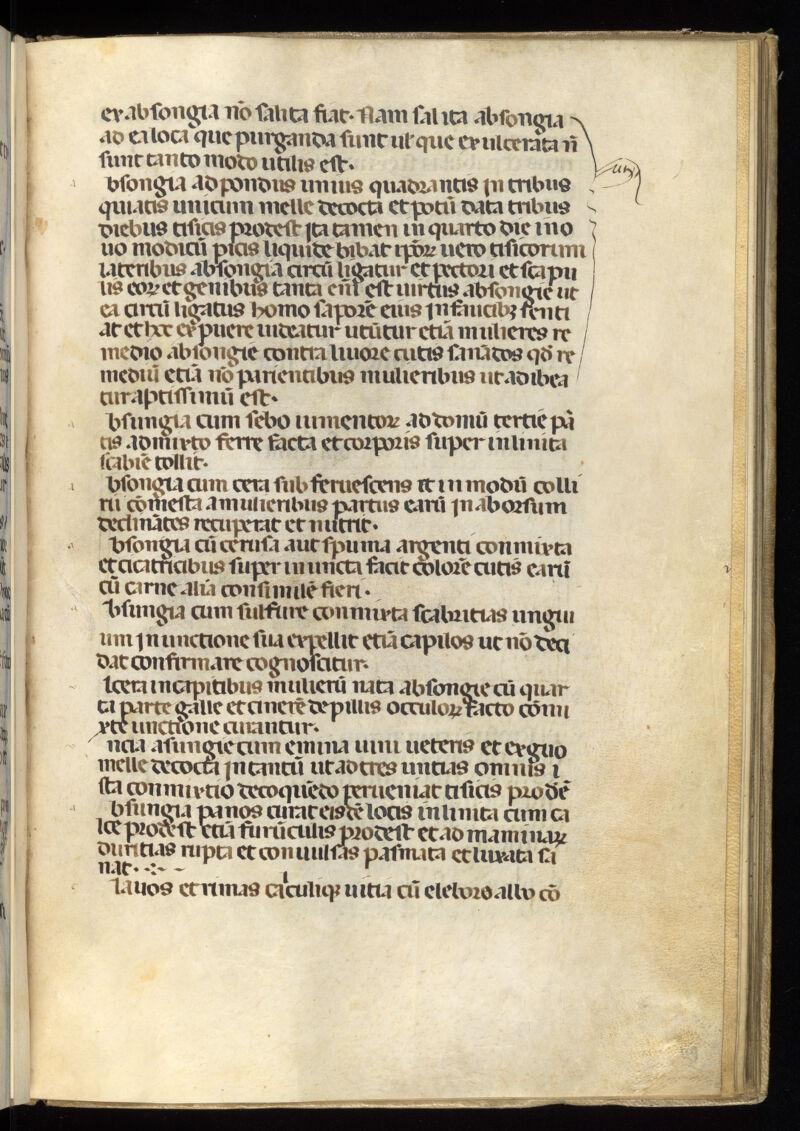 ex absongia nō salita fiat. Nam salita absongia
ad ea loca que purganda sunt ul' que exulcerata n̄
sunt tanto modo utilis est.
bsongia ad pondus unius quadrantis in tribus
quiatis uini cum melle decocta et potū data tribus
diebus tisicis prodest ita tamen in quarto die ino
uo modicū picis liquide bibat ipoꝝ uero tisicorum
lateribus absongia circū ligatur et pectori et scapu
lis eoꝝ et genibus tanta enī est uirtus absongie ut
ea circū ligatus homo saporē eius in faucibꝫ senti
at et hec expuere uideatur utūtur etiā mulieres re
medio absongie contra liuore cutis sanādos qd̄ re
mediū etiā nō parientibus mulieribus ut adibea
tur aptissimū est.
bsungia cum sebo iumentoꝝ ad domū tertie pā
tis admixto ferre facta et corporis super inlinita
scabiē tollit.
bsongia cum cera sub feruescens et in modū colli
rii cōmesta a mulieribus partus earū in aborsum
declinātes recuperat et nutrit.
bsongia cū cerusa aut spuma argenti conmixta
et cicatricibus super inuncta facit colorē cutis earū
cū carne alia consimilē fieri.
bsungia cum sulfure conmixta scabritias ungui
um in unctione sua expellit etiā capilos ut nō deci
dat confirmare cognoscitur.
lcera in capitibus mulierū nata absongie cū quar
ta parte galle et cinerē de pillis occuloꝝ facto cōmi
xte unctione curantur.
ncia asungie cum emina uini ueteris et exguo
melle decocta in tantū ut ad tres untias omnis i
sta conmixtio decoquēdo perueniat tisicis prodē
bsungia panos curat eisdē locis inlinita cum ca
lce prodest etiā furūculis prodest et ad mammaꝝ
duritias rupta et conuulsas pasmata et luxata sa
nat.
lauos et rimas calculiqꝫ uitia cū eleboro albo cō